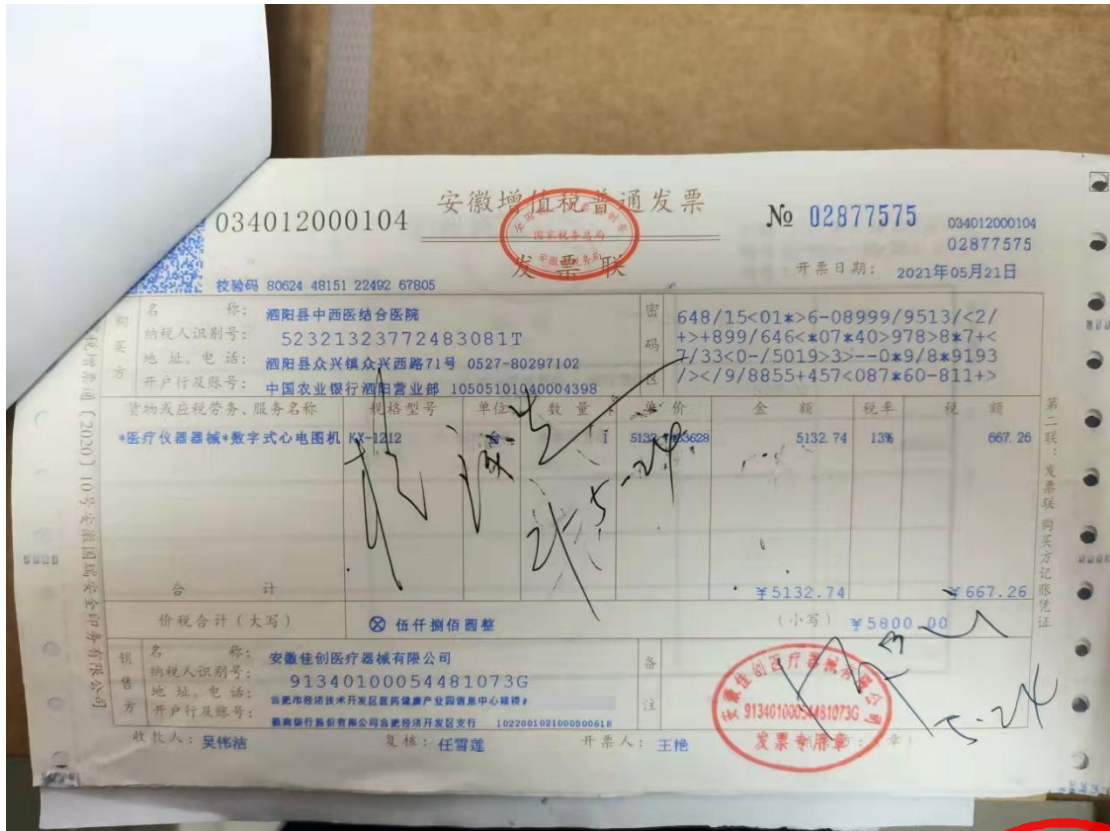 安徽增值税普通发票
034012000104
№ 02877575
034012000104
02877575
全国统一发票监制章
国家税务总局
发票联
开票日期: 2021年05月21日
校验码 80624 48151 22492 67805
购买方
名 称: 泗阳县中西医结合医院
纳税人识别号: 52321323772483081T
地 址、电 话: 泗阳县众兴镇众兴西路71号 0527-80297102
开户行及账号: 中国农业银行泗阳营业部 10505101040004398
密码区
648/15<01*>6-08999/9513/<2/
+>+899/646<*07*40>978>8*7+<
7/33<0-/5019>3>--0*9/8*9193
/></9/8855+457<087*60-811+>
货物或应税劳务、服务名称 规格型号 单位 数 量 单 价 金 额 税率 税 额
*医疗仪器器械*数字式心电图机 KX-1212 台 1 5132.74 13% 667.26
合 计 ¥5132.74 ¥667.26
价税合计(大写) ⊗ 伍仟捌佰圆整 (小写) ¥5800.00
销售方
名 称: 安徽佳创医疗器械有限公司
纳税人识别号: 91340100054481073G
地 址、电 话: 合肥市经济技术开发区医药健康产业园信息中心
开户行及账号: 徽商银行股份有限公司合肥经济开发区支行 1022001021000500618
备注
安徽佳创医疗器械有限公司
91340100054481073G
发票专用章
收款人: 吴伟洁 复核: 任雪莲 开票人: 王艳 (章)
第二联:发票联 购买方记账凭证
〔2020〕10号安徽国瑞安全印务有限公司
21.5.24
5.24